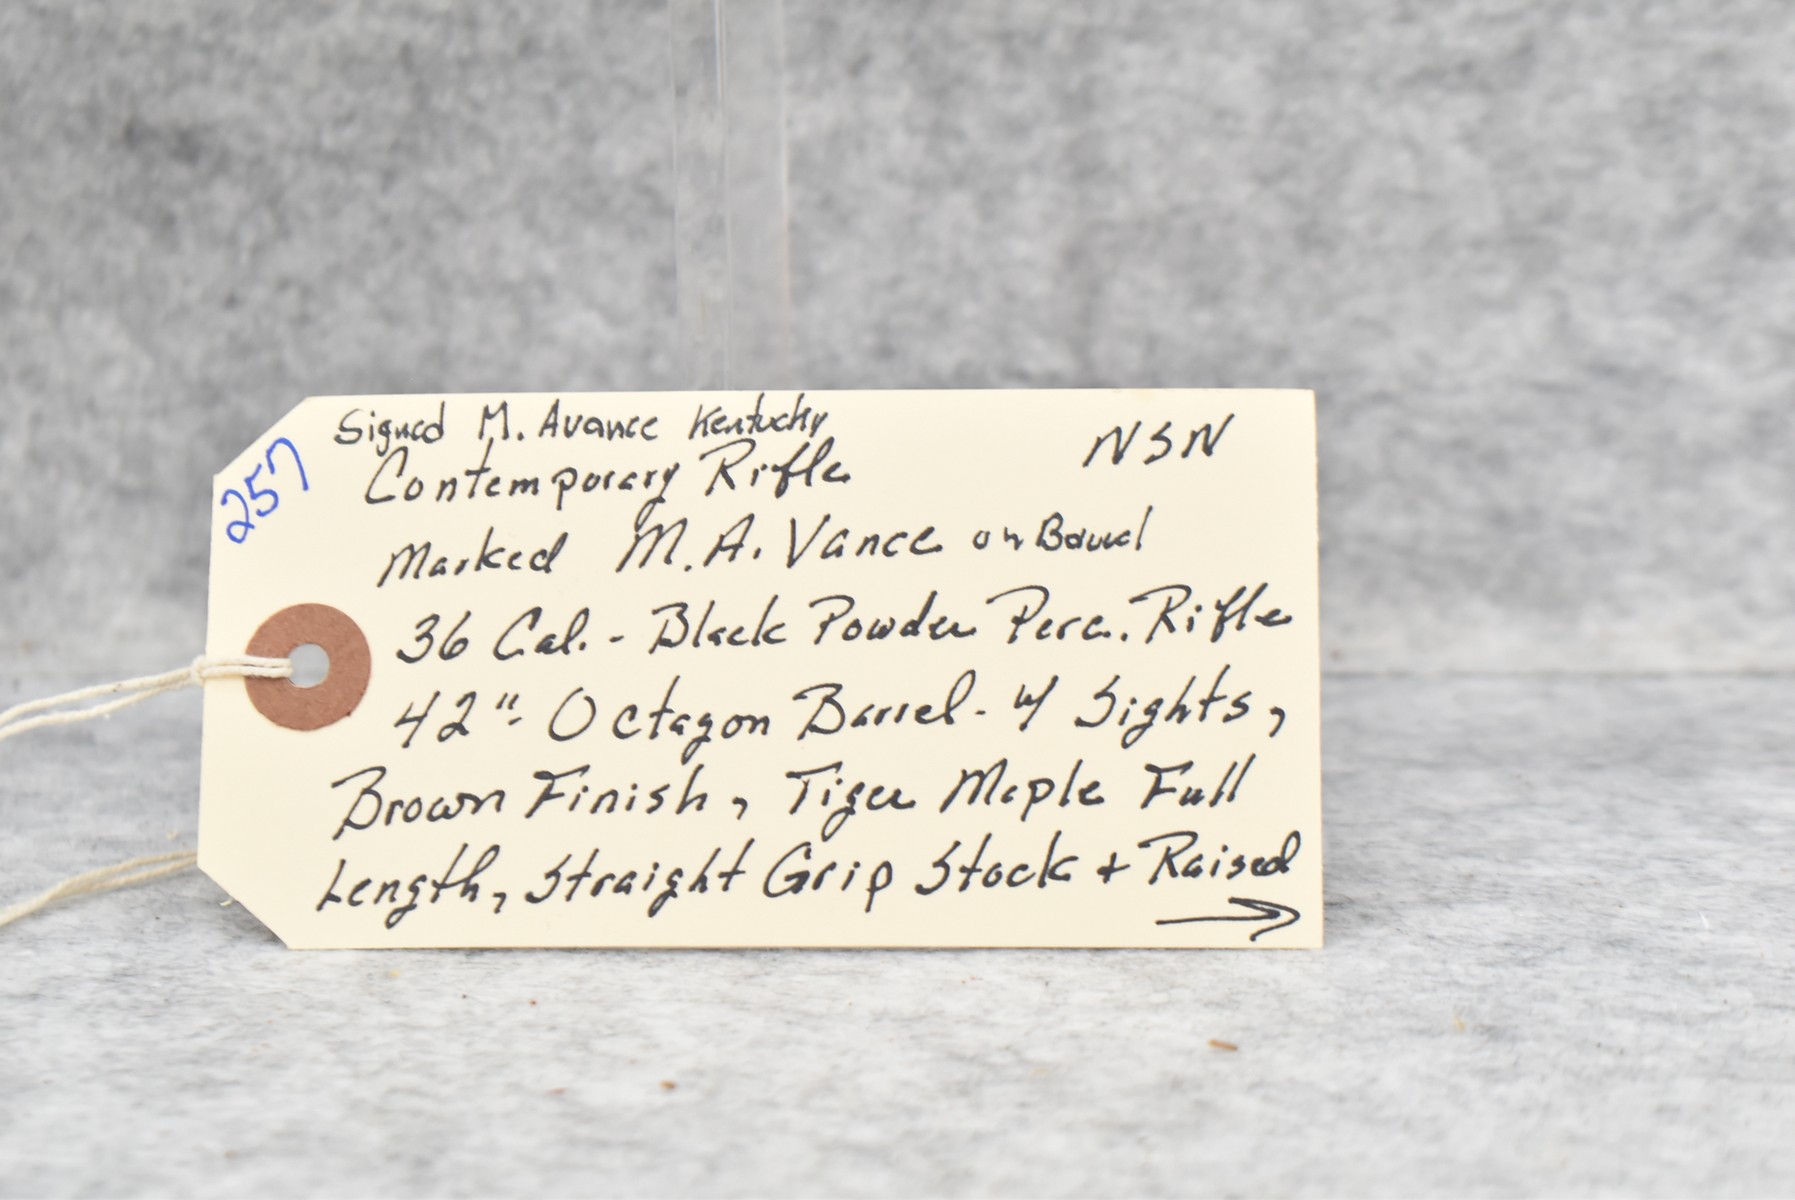 257
Signed M. Avance Kentucky
NSN
Contemporary Rifle
Marked M.A. Vance on Barrel
36 Cal. - Black Powder Perc. Rifle
42" - Octagon Barrel - w/ Sights,
Brown Finish, Tiger Maple Full
Length, Straight Grip Stock + Raised
→